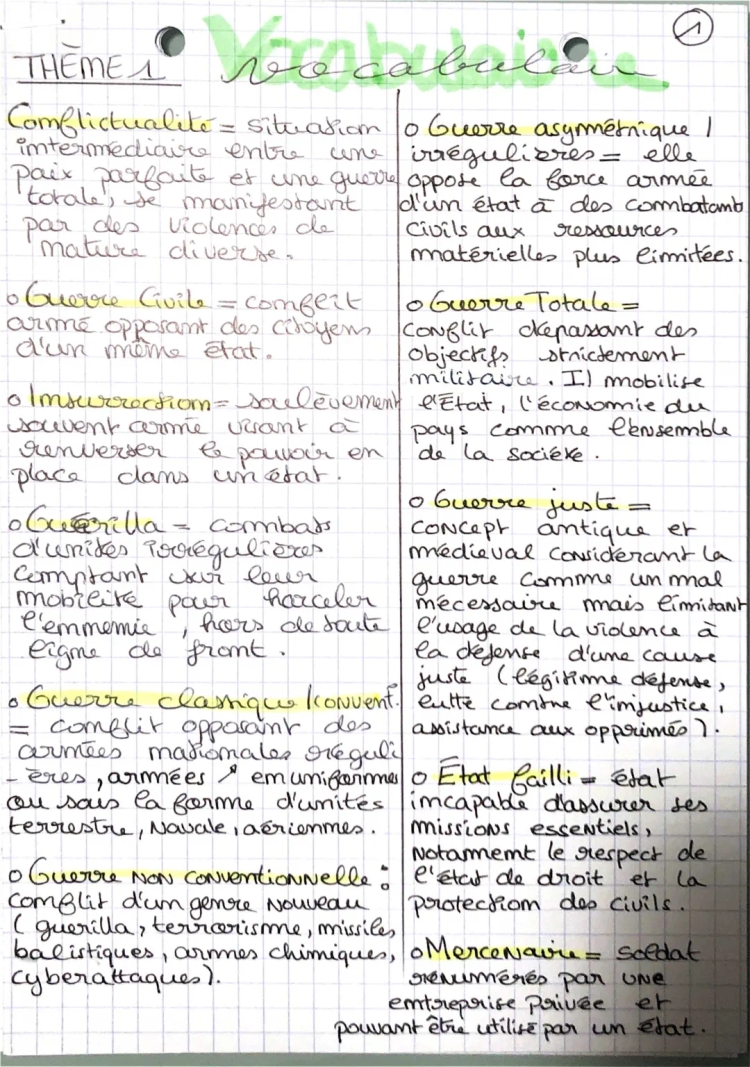 1
THÈME 1
Vocabulaire
vocabulair
Conflictualité = situation
intermédiaire entre une
paix parfaite et une guerre
totale, se manifestant
par des violences de
nature diverse.
o Guerre Civile = conflit
armé opposant des citoyens
d'un même état.
o Insurrection = soulèvement
souvent armé visant à
renverser le pouvoir en
place dans un état.
o Guérilla = combats
d'unités irrégulières
comptant sur leur
mobilité pour harceler
l'ennemie, hors de toute
ligne de front.
o Guerre classique / convent.
= conflit opposant des
armées nationales réguli
-ères, armées ↗ en uniformes
ou sous la forme d'unités
terrestre, navale, aériennes.
o Guerre NON CONVENTIONNELLE :
conflit d'un genre nouveau
( guerilla, terrorisme, missiles
balistiques, armes chimiques,
cyberattaques ).
o Guerre asymétrique /
irrégulières = elle
oppose la force armée
d'un état à des combatants
civils aux ressources
matérielles plus limitées.
o Guerre Totale =
conflit dépassant des
objectifs strictement
militaire. Il mobilise
l'État, l'économie du
pays comme l'ensemble
de la société.
o Guerre juste =
concept antique et
médieval considérant la
guerre comme un mal
nécessaire mais limitant
l'usage de la violence à
la défense d'une cause
juste ( légitime défense,
lutte contre l'injustice,
assistance aux opprimés ).
o État failli = état
incapable d'assurer ses
missions essentiels,
notamment le respect de
l'état de droit et la
protection des civils.
o Mercenaire = soldat
rénumérés par une
entreprise privée et
pouvant être utilisé par un état.